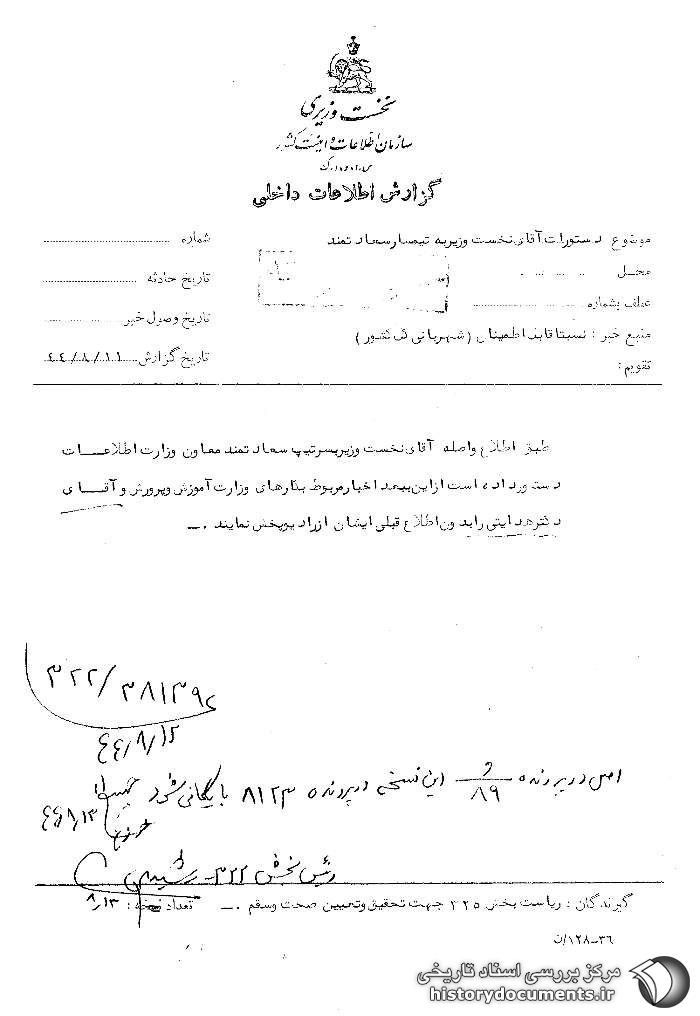 نخست وزیری
سازمان اطلاعات و امنیت کشور
س.ا.و.ا.ک
گزارش اطلاعات داخلی
موضوع دستورات آقای نخست وزیر به تیمسار سعادتمند
شماره
محل
تاریخ حادثه
عطف بشماره
تاریخ وصول خبر
منبع خبر : نسبتا قابل اطمینان (شهربانی کل کشور)
تاریخ گزارش ۴۴/۸/۱۱
تقویم:
طبق اطلاع واصله آقای نخست وزیر بسرتیپ سعادتمند معاون وزارت اطلاعات
دستور داده است از این ببعد اخبار مربوط بکارهای وزارت آموزش و پرورش و آقای
دکتر هدایتی را بدون اطلاع قبلی ایشان از رادیو پخش نمایند .ـ
۳۲۲/۳۸۱۳۹۲
۴۴/۸/۱۲
اصل در پرونده و/۸۹ این نسخه در پرونده ۸۱۲۳ بایگانی شود
۴۴/۸/۱۳
رئیس بخش ۳۲۲ـ رشیدی
۸/۱۳
گیرندگان : ریاست بخش ۳۲۵ جهت تحقیق و تعیین صحت و سقم .ـ
تعداد نسخه :
۳۶ـ۱۲۸/ن
مرکز بررسی اسناد تاریخی
historydocuments.ir